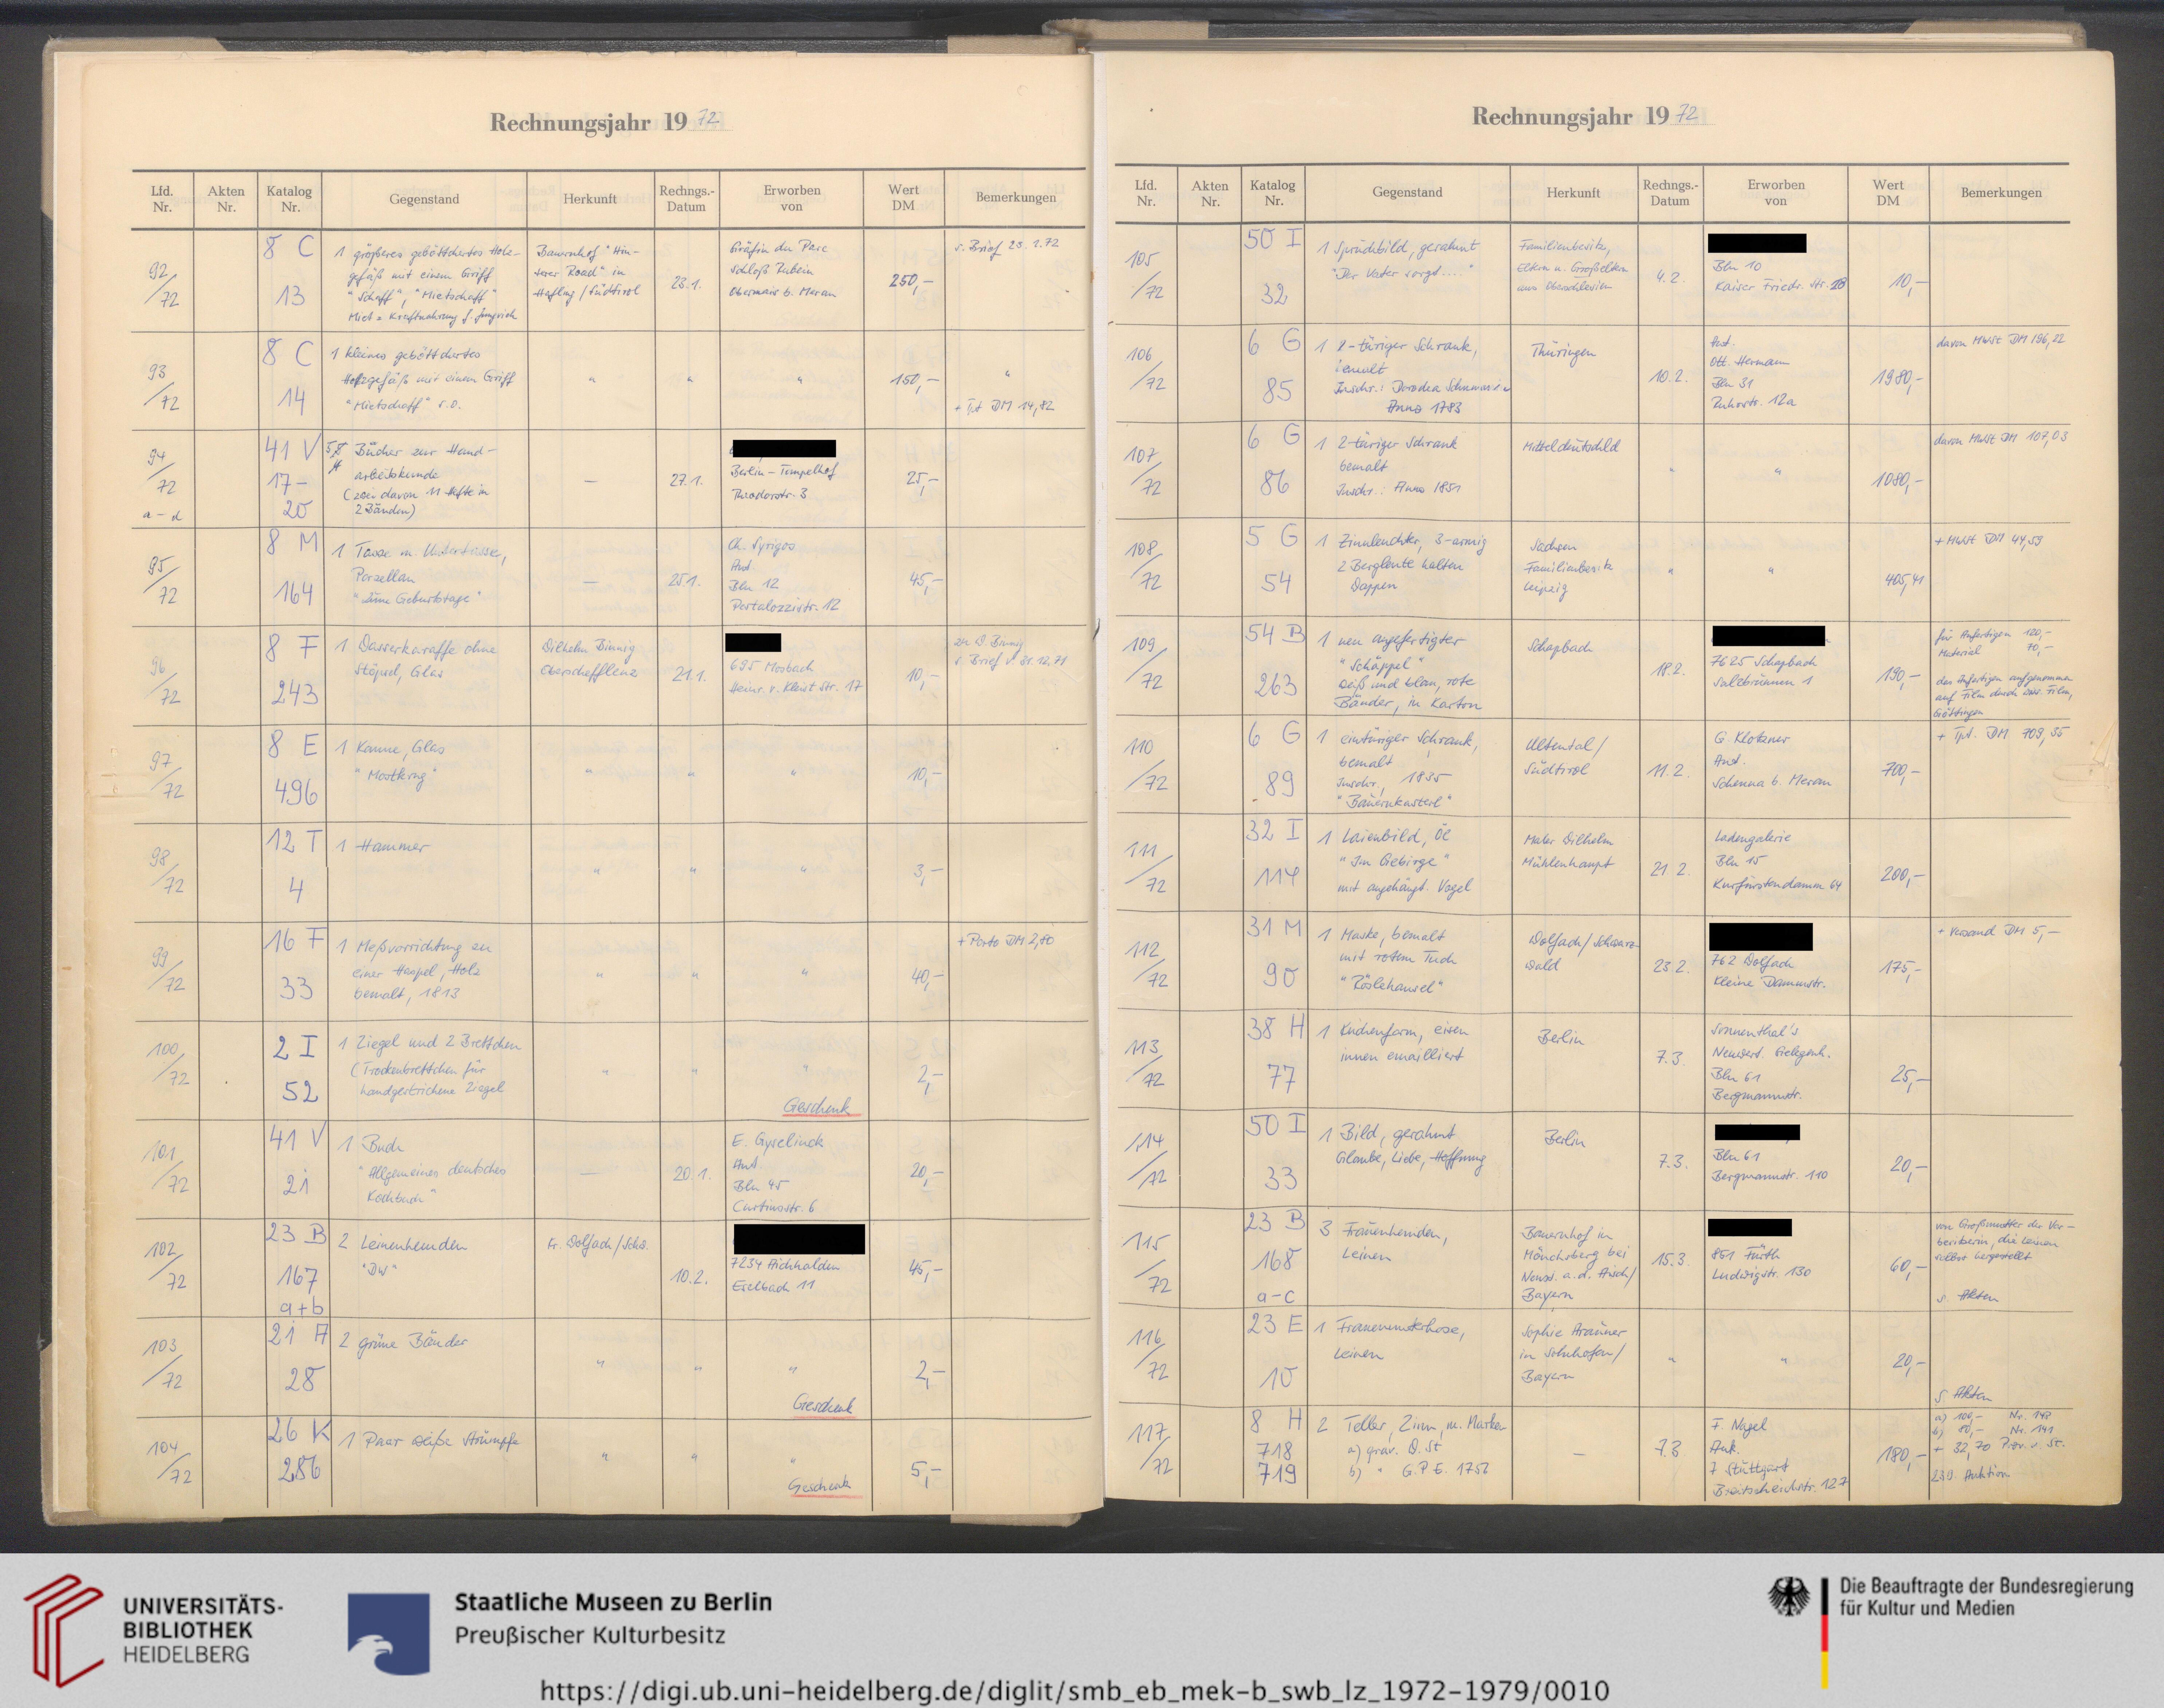 Rechnungsjahr 19 72
Lfd. Nr.
Akten Nr.
Katalog Nr.
Gegenstand
Herkunft
Rechngs.- Datum
Erworben von
Wert DM
Bemerkungen
92/72
8 C
13
1 größeres geböttchertes Holz-
gefäß mit einem Griff
"Schaff", "Mietschaff"
Miet = Kraftnahrung f. Jungvieh
Bauernhof "Hin-
terer Road" in
Hafling / Südtirol
28.1.
Gräfin du Parc
Schloß Rubein
Obermais b. Meran
250,-
s. Brief 23.1.72
93/72
8 C
14
1 kleines geböttchertes
Holzgefäß mit einem Griff
"Mietschaff" s.o.
"
"
"
150,-
"
+ Tpt DM 14,82
94/72
a-d
41 V
17-
20
Bücher zur Hand-
arbeitskunde
(zwei davon 11 Hefte in
2 Bänden)
—
27.1.
Berlin-Tempelhof
Theodorstr. 3
25,-
95/72
8 M
164
1 Tasse m. Untertasse,
Porzellan
"Zum Geburtstage"
—
25.1.
Ch. Syrigos
Ant.
Bln 12
Pestalozzistr. 12
45,-
96/72
8 F
243
1 Wasserkaraffe ohne
Stöpsel, Glas
Wilhelm Binnig
Oberschefflenz
21.1.
695 Mosbach
Heinr. v. Kleist Str. 17
10,-
zu W. Binnig
s. Brief v. 31.12.71
97/72
8 E
496
1 Kanne, Glas
"Mostkrug"
"
"
"
10,-
98/72
12 T
4
1 Hammer
"
"
"
3,-
99/72
16 F
33
1 Meßvorrichtung zu
einer Haspel, Holz
bemalt, 1813
"
"
"
40,-
+ Porto DM 2,80
100/72
2 I
52
1 Ziegel und 2 Brettchen
(Trockenbrettchen für
handgestrichene Ziegel
"
"
"
Geschenk
2,-
101/72
41 V
21
1 Buch
"Allgemeines deutsches
Kochbuch"
—
20.1.
E. Gyselinck
Ant.
Bln 45
Curtiusstr. 6
20,-
102/72
23 B
167
a+b
2 Leinenhemden
"DW"
Kr. Wolfach/Schw.
10.2.
7234 Aichhalden
Eselbach 11
45,-
103/72
21 A
28
2 grüne Bänder
"
"
"
Geschenk
2,-
104/72
26 K
286
1 Paar weiße Strümpfe
"
"
"
Geschenk
5,-
Rechnungsjahr 19 72
Lfd. Nr.
Akten Nr.
Katalog Nr.
Gegenstand
Herkunft
Rechngs.- Datum
Erworben von
Wert DM
Bemerkungen
105/72
50 I
32
1 Spruchbild, gerahmt
"Der Vater sorgt...."
Familienbesitz,
Eltern u. Großeltern
aus Oberschlesien
4.2.
Bln 10
Kaiser Friedr. Str.
10,-
106/72
6 G
85
1 2-türiger Schrank,
bemalt
Inschr.: Dorodea
Anno 1783
Thüringen
10.2.
Ant.
Ott. Hermann
Bln 31
Ruhrstr. 12a
1980,-
davon MWSt DM 196,22
107/72
6 G
86
1 2-türiger Schrank
bemalt
Inschr.: Anno 1851
Mitteldeutschld
"
"
1080,-
davon MWSt DM 107,03
108/72
5 G
54
1 Zinnleuchter, 3-armig
2 Bergleute halten
Wappen
Sachsen
Familienbesitz
Leipzig
"
"
405,41
+ MWSt DM 44,59
109/72
54 B
263
1 neu angefertigter
"Schäppel"
weiß und blau, rote
Bänder, in Karton
Schapbach
18.2.
7625 Schapbach
Salzbrunnen 1
190,-
für Anfertigen 120,-
Material 70,-
das Anfertigen aufgenommen
auf Film durch wiss. Film,
Göttingen
110/72
6 G
89
1 eintüriger Schrank,
bemalt
Inschr., 1835
"Bauernkasterl"
Ultental/
Südtirol
11.2.
G. Klotzner
Ant.
Schenna b. Meran
700,-
+ Tpt. DM 709,35
111/72
32 I
114
1 Laienbild, Öl
"Im Gebirge"
mit angehängt. Vogel
Maler Wilhelm
Mühlenhaupt
21.2.
Ladengalerie
Bln 15
Kurfürstendamm 64
200,-
112/72
31 M
90
1 Maske, bemalt
mit rotem Tuch
"Röslehansel"
Wolfach/Schwarz-
wald
23.2.
762 Wolfach
Kleine Dammstr.
175,-
+ Versand DM 5,-
113/72
38 H
77
1 Kuchenform, eisen
innen emailliert
Berlin
7.3.
Sonnenthal's
Neuwert. Gelegenh.
Bln 61
Bergmannstr.
25,-
114/72
50 I
33
1 Bild, gerahmt
Glaube, Liebe, Hoffnung
Berlin
7.3.
Bln 61
Bergmannstr. 110
20,-
115/72
23 B
168
a-c
3 Frauenhemden,
Leinen
Bauernhof in
Mönchsberg bei
Neust. a.d. Aisch/
Bayern
15.3.
851 Fürth
Ludwigstr. 130
60,-
von Großmutter der Vor-
besitzerin, die Leinen
selbst hergestellt
s. Akten
116/72
23 E
10
1 Frauenunterhose,
Leinen
Sophie Arauner
in Solnhofen/
Bayern
"
"
20,-
s Akten
117/72
8 H
718
719
2 Teller, Zinn, m. Marken
a) grav. W. St
b) " G.P.E. 1756
—
7.3
F. Nagel
Auk.
7 Stuttgart
Breitscheidstr. 127
180,-
a) 100,- Nr. 148
b) 80,- Nr. 141
+ 32,70 Prov. u. St.
239. Auktion
UNIVERSITÄTS-
BIBLIOTHEK
HEIDELBERG
Staatliche Museen zu Berlin
Preußischer Kulturbesitz
Die Beauftragte der Bundesregierung
für Kultur und Medien
https://digi.ub.uni-heidelberg.de/diglit/smb_eb_mek-b_swb_lz_1972-1979/0010